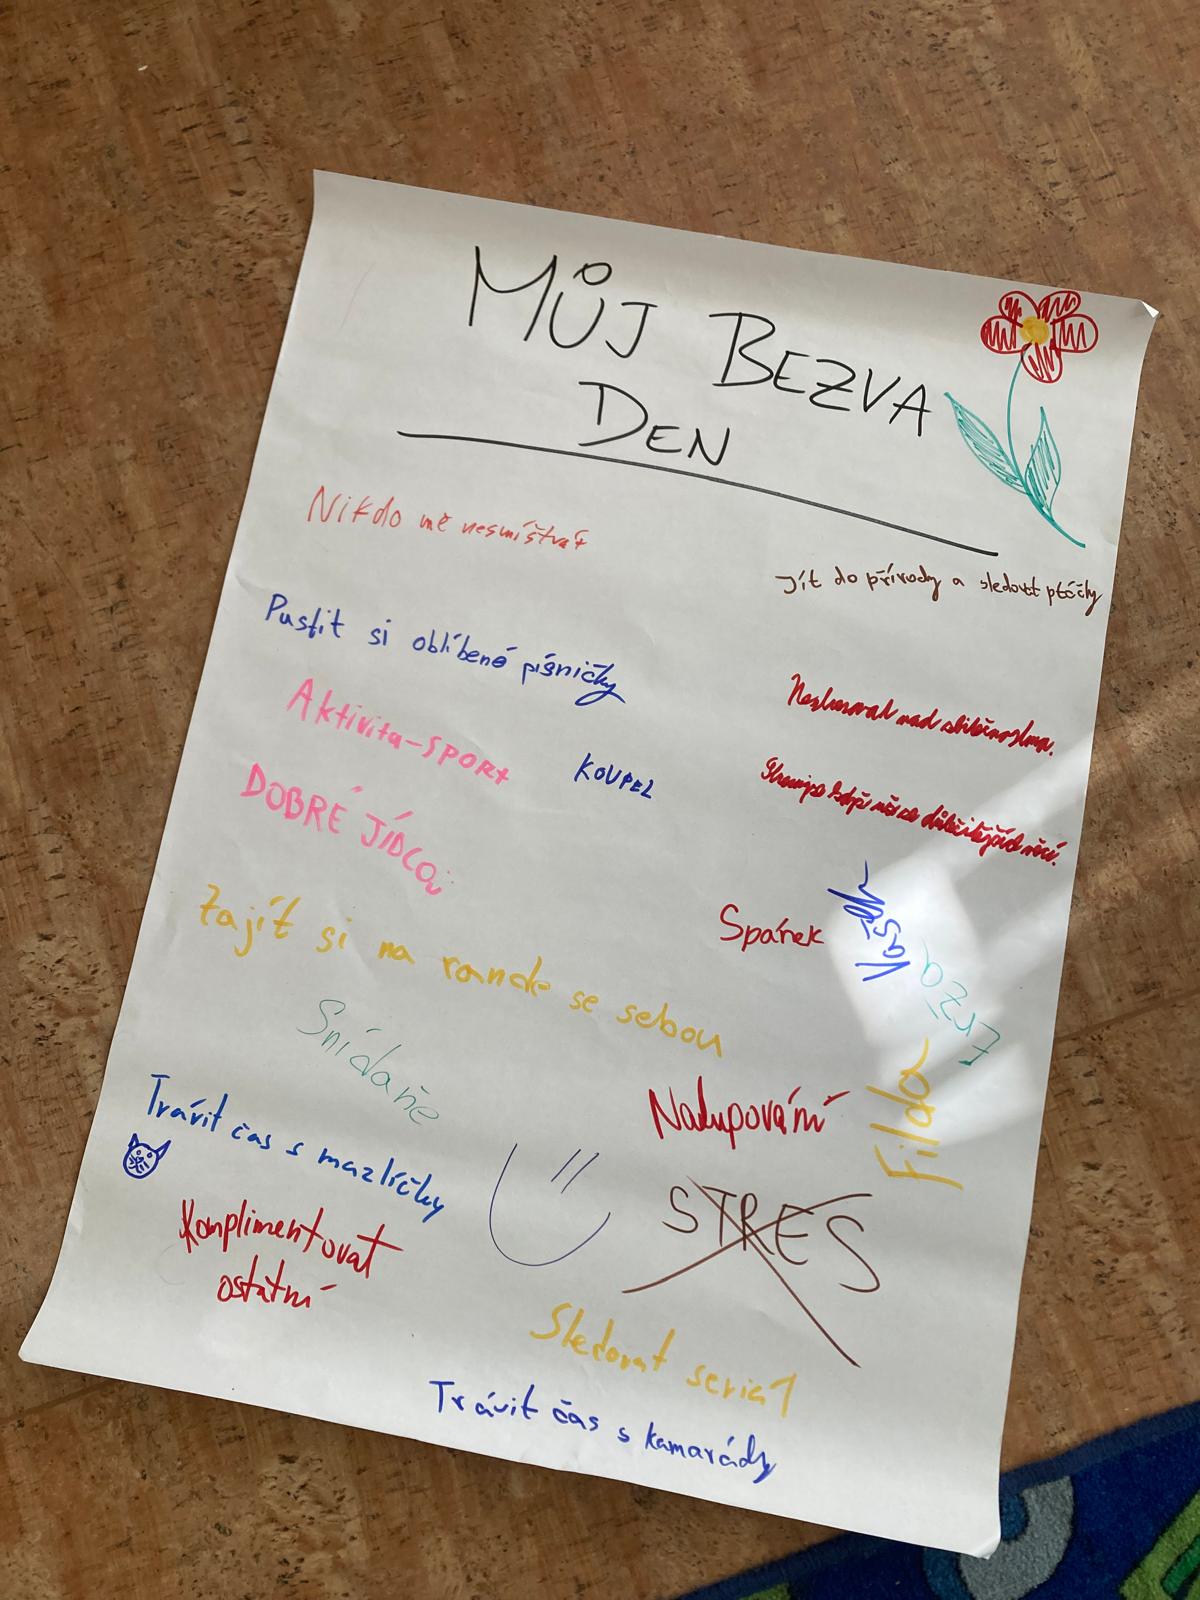 MŮJ BEZVA
DEN
Nikdo mě nesmí štvát
Jít do přírody a sledovat ptáčky
Pustit si oblíbené písničky
nad
Aktivita-SPORT
KOUPEL
když
DOBRÉ JÍDLO
Spánek
Zajít si na rande se sebou
Snídaně
Filda
Nakupování
Trávit čas s mazlíčky
STRES
Komplimentovat
ostatní
Sledovat seriál
Trávit čas s kamarády